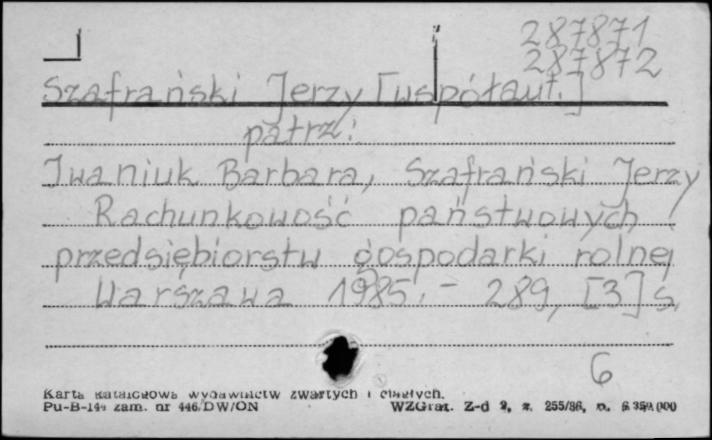 287871
287872
Szafrański Jerzy [współaut.]
patrz:
Iwaniuk Barbara, Szafrański Jerzy
Rachunkowość państwowych
przedsiębiorstw gospodarki rolnej
Warszawa 1985.- 289, [3] s.
6
Karta katalogowa wydawnictw zwartych i ciągłych.
Pu-B-144 zam. nr 446/DW/ON WZGraf. Z-d 2, z. 255/86, n.